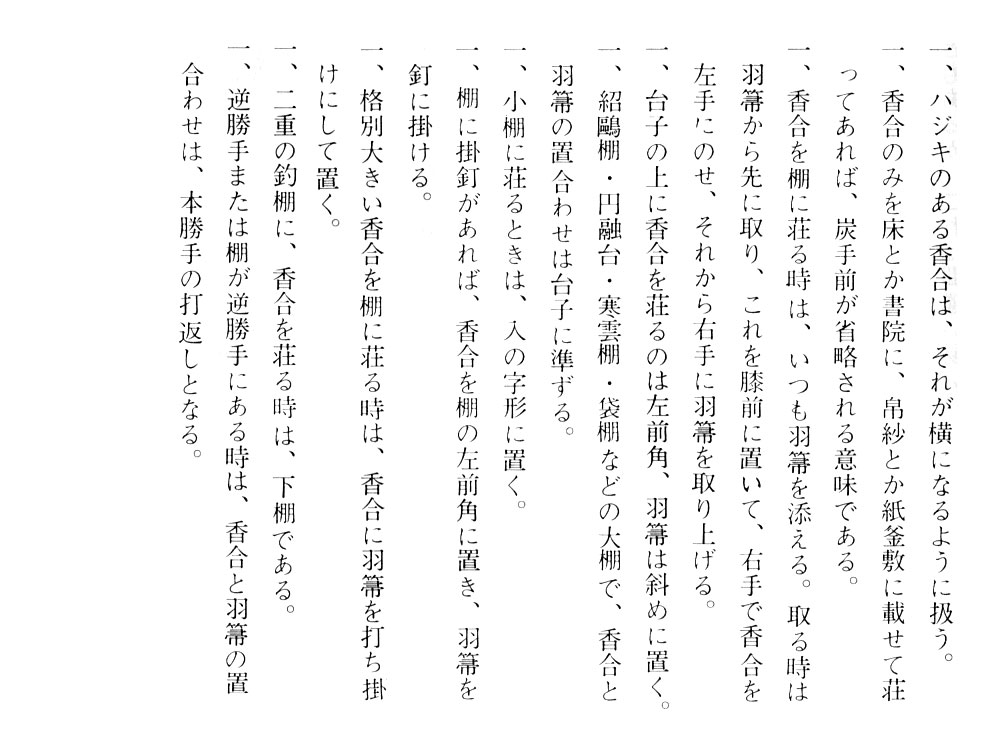 一、ハジキのある香合は、それが横になるように扱う。
一、香合のみを床とか書院に、帛紗とか紙釜敷に載せて荘
ってあれば、炭手前が省略される意味である。
一、香合を棚に荘る時は、いつも羽箒を添える。取る時は
羽箒から先に取り、これを膝前に置いて、右手で香合を
左手にのせ、それから右手に羽箒を取り上げる。
一、台子の上に香合を荘るのは左前角、羽箒は斜めに置く。
一、紹鷗棚・円融台・寒雲棚・袋棚などの大棚で、香合と
羽箒の置合わせは台子に準ずる。
一、小棚に荘るときは、入の字形に置く。
一、棚に掛釘があれば、香合を棚の左前角に置き、羽箒を
釘に掛ける。
一、格別大きい香合を棚に荘る時は、香合に羽箒を打ち掛
けにして置く。
一、二重の釣棚に、香合を荘る時は、下棚である。
一、逆勝手または棚が逆勝手にある時は、香合と羽箒の置
合わせは、本勝手の打返しとなる。